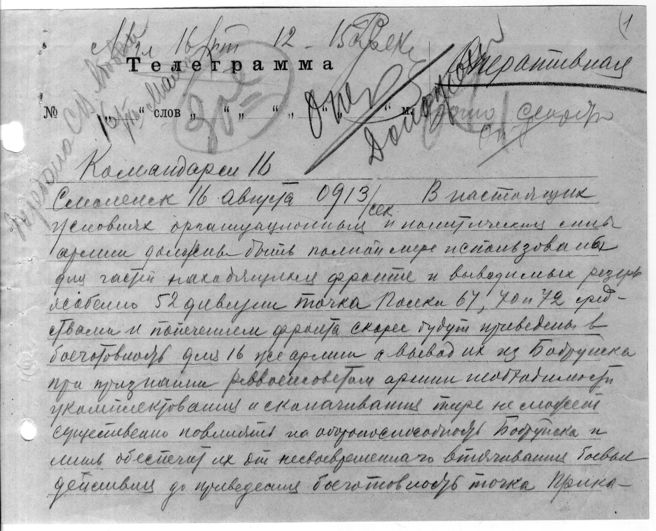 16 авг 12 - 15
1
Телеграмма
Оперативная
№ „ слов „ „ „ „ ч. м.
Командарм 16
Смоленск 16 августа 0913/сек В настоящих
условиях организационные и политические силы
армии должны быть полной мере использованы
для частей находящихся фронте и выводимых резерв
особенно 52 дивизии точка Полки 67, 70 и 72 сред-
ствами и попечением фронта скорее будут приведены в
боеготовность для 16 же армии а вывод их из Бобруйска
при признании реввоенсоветом армии необходимости
укомплектования и сколачивания тире не может
существенно повлиять на обороноспособность Бобруйска и
лишь обеспечит их от несвоевременного втягивания боевые
действия до приведения боеготовность точка Прика-